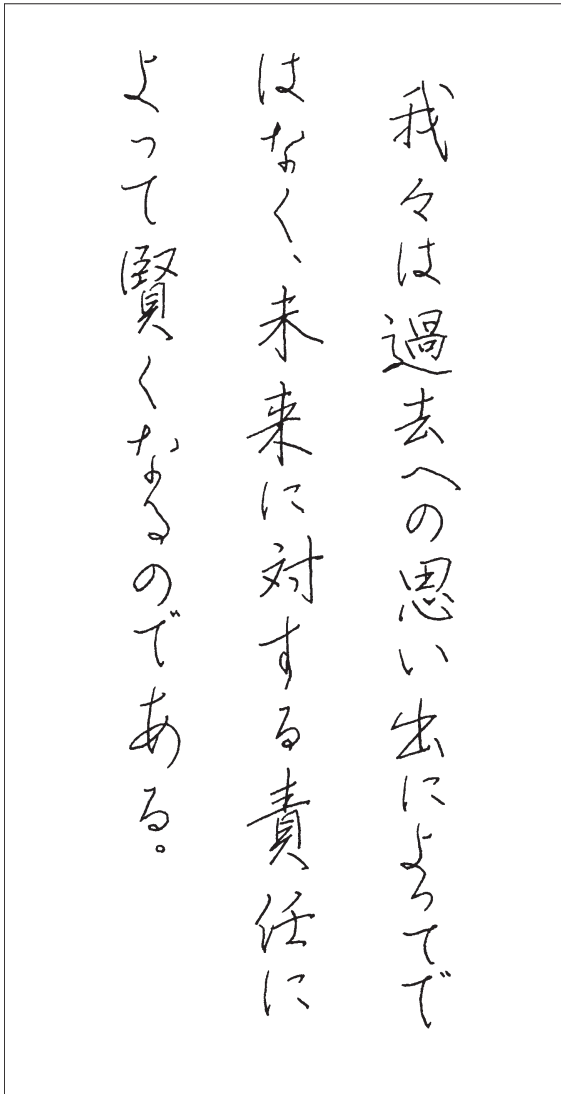 我々は過去への思い出によってで
はなく、未来に対する責任に
よって賢くなるのである。